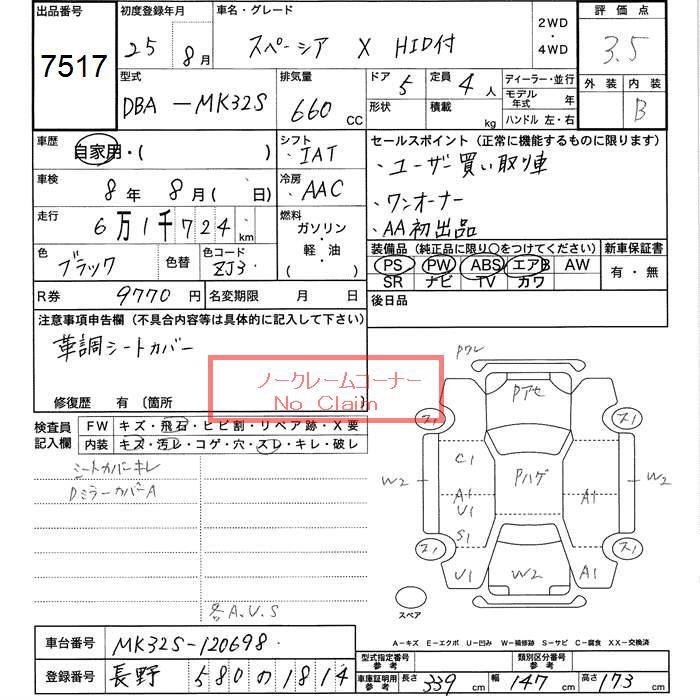 出品番号 初度登録年月 車名・グレード 2WD・4WD 評価点
7517 25年 8月 スペーシア X HID付 3.5
型式 排気量 ドア 5 定員 4人 ディーラー・並行 外装 内装
DBA-MK32S 660 CC 形状 積載 kg モデル年式 年 B
ハンドル 左・右
車歴 自家用・( ) シフト ・IAT セールスポイント (正常に機能するものに限ります)
車検 8年 8月( 日) 冷房 ・AAC ・ユーザー買い取り車
走行 6万1千724km 燃料 ガソリン・軽・油 ( ) ・ワンオーナー
・AA初出品
色 ブラック 色替 色コード ZJ3 装備品 (純正品に限り○をつけてください) 新車保証書
PS PW ABS エアB AW 有・無
SR ナビ TV カワ
R券 9770円 名変期限 月 日 後日品
注意事項申告欄 (不具合内容等は具体的に記入して下さい)
革調シートカバー
ノークレームコーナー
No Claim
修復歴 有 〔箇所
検査員記入欄 FW キズ・飛石・ヒビ割・リペア跡・X要
内装 キズ・汚レ・コゲ・穴・スレ・キレ・破レ
シートカバーキレ
DミラーカバーA
各A.U.S
PワレPアセ
C1 Pハゲ
W2 A1 U1 A1 W2
S1
U1 W2 A1
スペア
A-キズ E-エクボ U-凹み W-補修跡 S-サビ C-腐食 XX-交換済
車台番号 MK32S-120698
型式指定番号 参考 類別区分番号 参考
登録番号 長野 580 の 1814
車庫証明用参考 長さ 339cm 幅 147cm 高さ 173cm